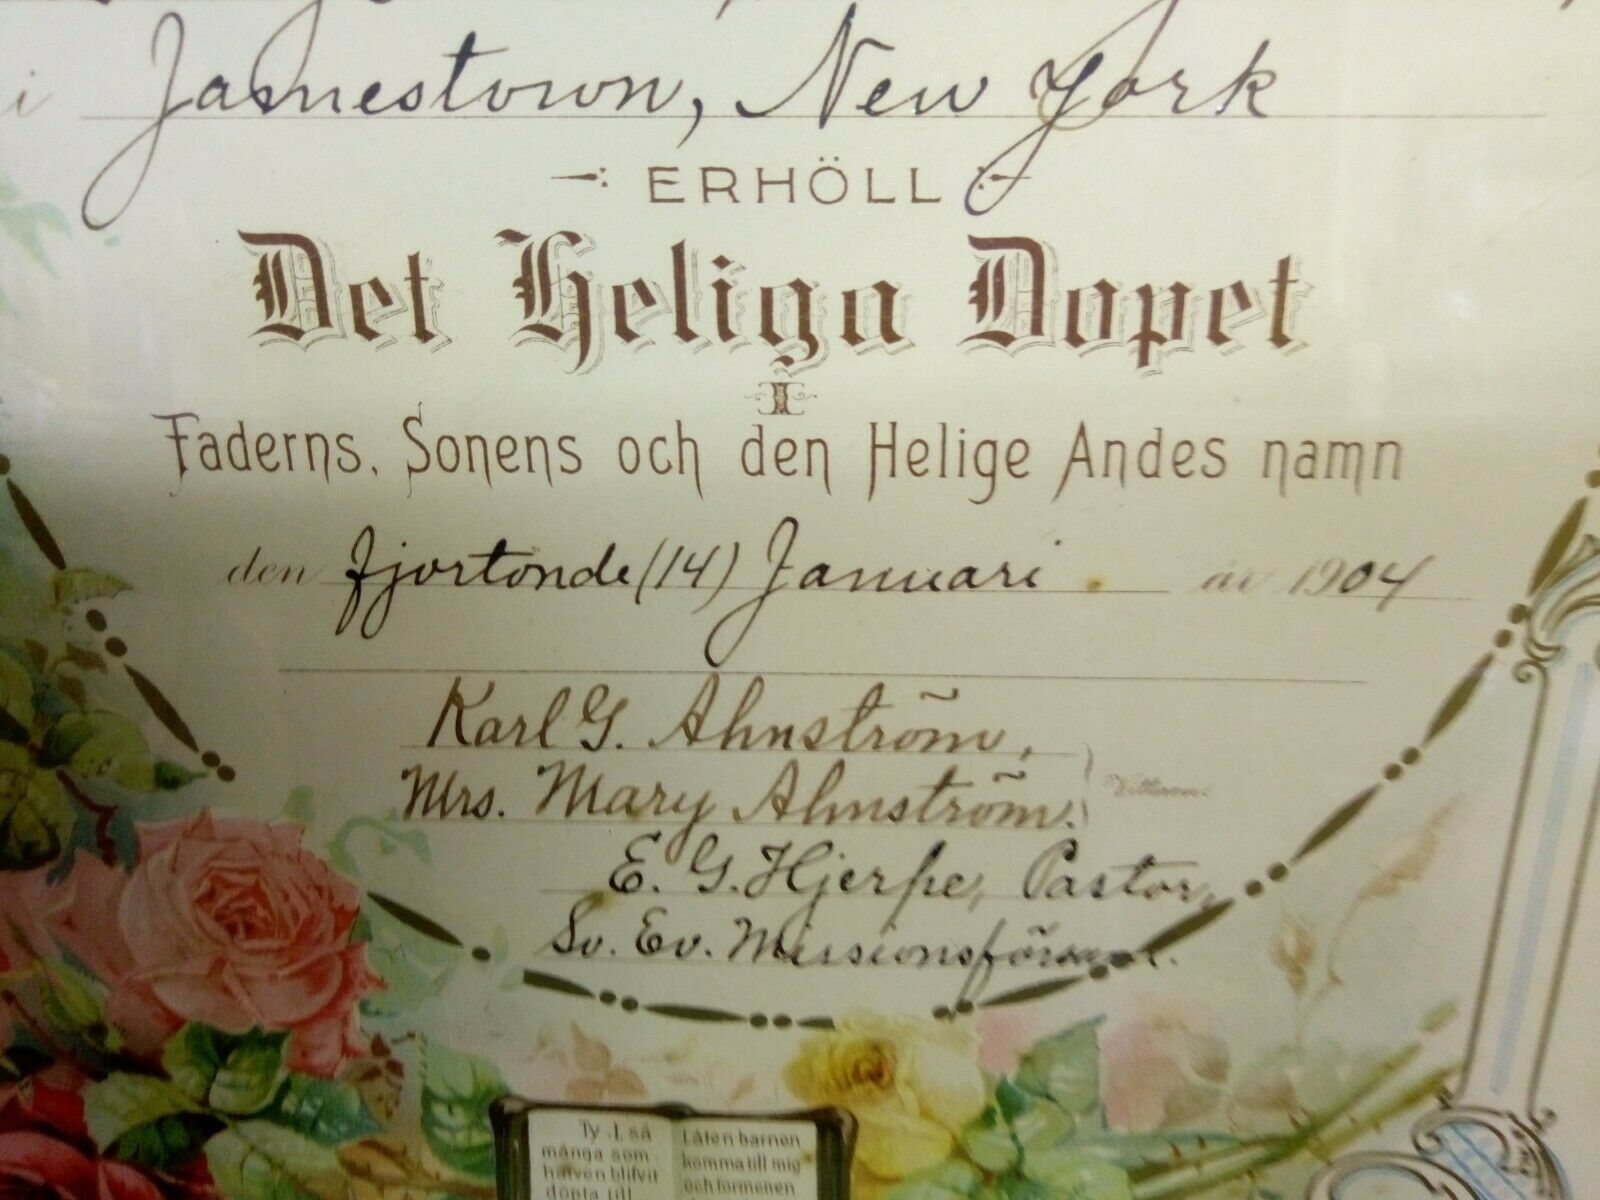 i Jamestown, New York
ERHÖLL
Det Heliga Dopet
I
Faderns, Sonens och den Helige Andes namn
den fjortonde (14) Januari år 1904
Karl G. Ahnström,
Mrs. Mary Ahnström. Vittnen.
E. G. Hjerpe, Pastor,
Sv. Ev. Missionsförsaml.
Ty I, så
många som
hafven blifvit
döpta till
Låten barnen
komma till mig
och förmenen